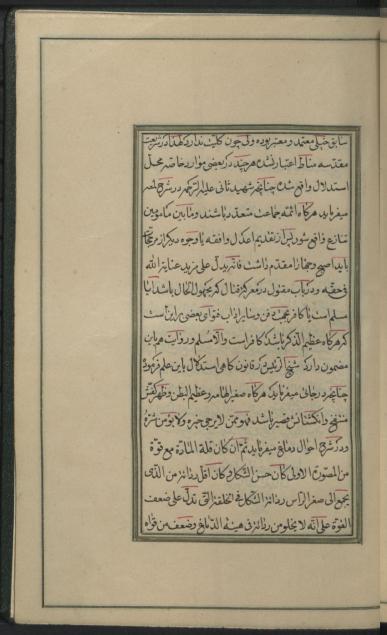 سابق خیلی معتمد و معتبر بوده ولی چون کلیت ندارد لهذا در شریعت
مقدسه مناط اعتبار نشده هر چند در بعضی موارد خاصه محل
استدلال واقع شده چنانچه شهید ثانی علیه الرحمه در شرح لمعه
میفرماید هرگاه ائمه جماعت متعدد باشند و ما بین مأمومین
تنازع واقع شود پس از تقدیم اعدل و افقه یا وجوه دیگر از مرجحات
باید اصبح وجها را مقدم داشت فانه یدل علی مزید عنایة الله
فی حقه و در باب مقتول در معرکه قتال که مجهول الحال باشد آیا
مسلم است یا کافر تجهیز و دفن و نماز او بفتوای بعضی بر این است
که هرگاه عظیم الذکر باشد کافر است و الا مسلم و روایت هم باین
مضمون دارد شیخ الرئیس در قانون گاهی استدلال باین علم فرموده
چنانچه در جائی میفرماید هرگاه صغیر الهامه و عظیم البطن و ظهر کفش
منتفخ و انگشتانش قصیر باشد فهو ممن لا یرجی خیره ولا یؤمن شره
و در شرح احوال دماغ میفرماید ثم ان کان قلة المادة مع قوة
من المصورة الاولی کان حسن الشکل و کان اقل رداءة من الذی
یجمع الی صغر الراس رداءة الشکل فی الخلقة التی تدل علی ضعف
القوة علی انه لا یخلو من رداءة فی هیئة الدماغ و ضعف من قواه